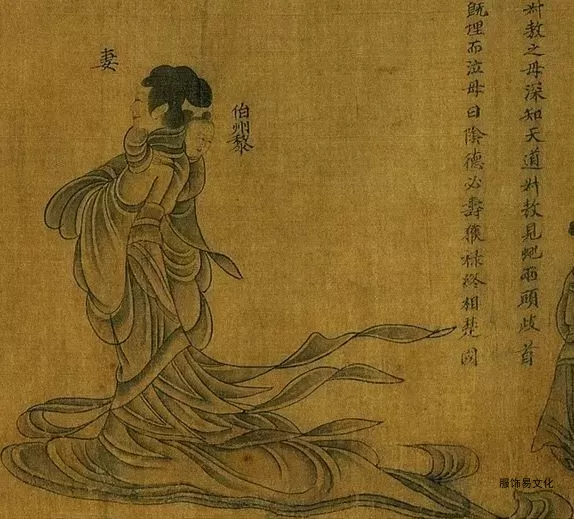 叔敖之母深知天道叔敖見虵兩頭歧首
既埋而泣母曰陰德必壽獲祿終相楚國
伯州黎
妻
服饰易文化